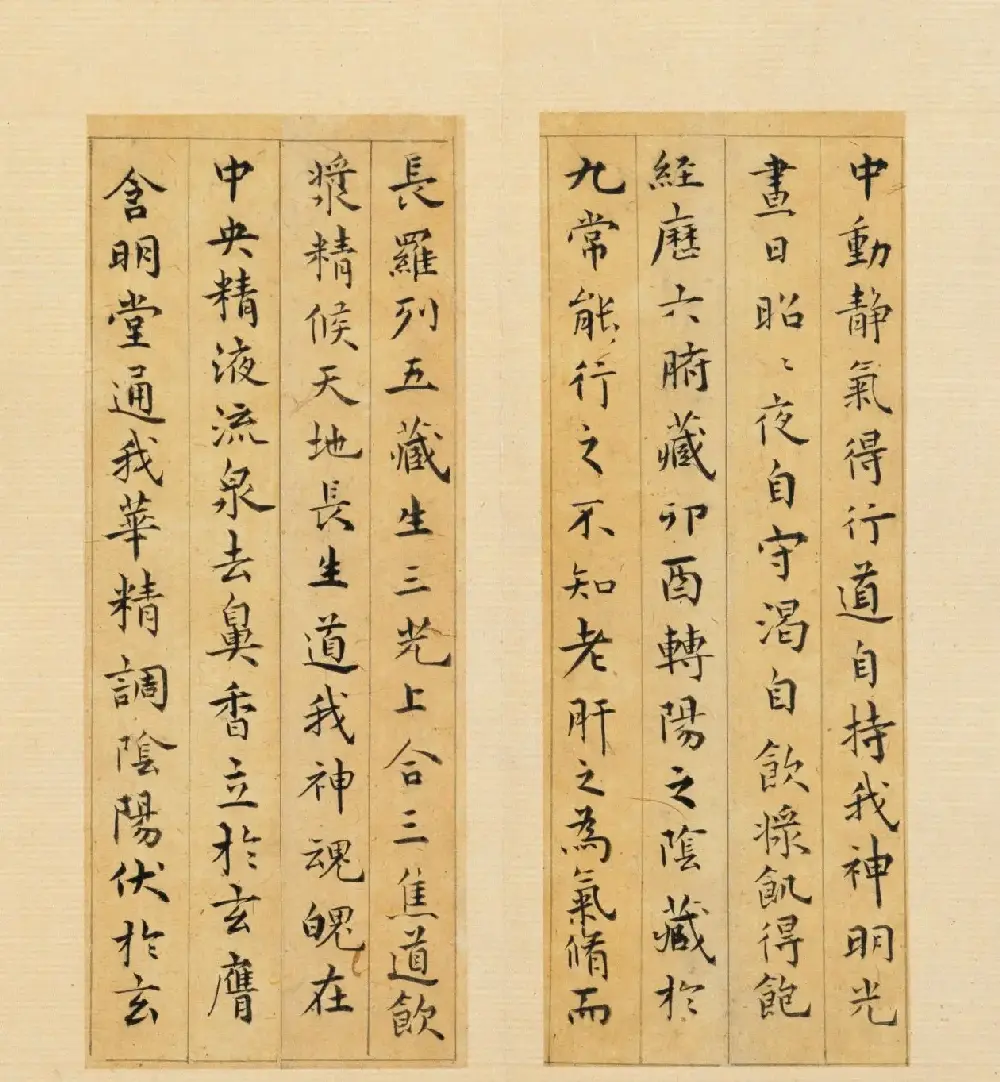 中動静氣得行道自持我神明光
晝日昭〻夜自守渴自飲漿飢得飽
経歷六腑藏卯酉轉陽之陰藏於
九常能行之不知老肝之為氣脩而
長羅列五藏生三光上合三焦道飲
漿精候天地長生道我神魂魄在
中央精液流泉去鼻香立於玄膺
含明堂通我華精調陰陽伏於玄